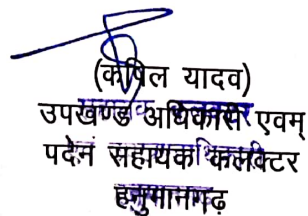 (कपिल यादव)
उपखण्ड अधिकारी एवम्
पदेन सहायक कलक्टर
हनुमानगढ़